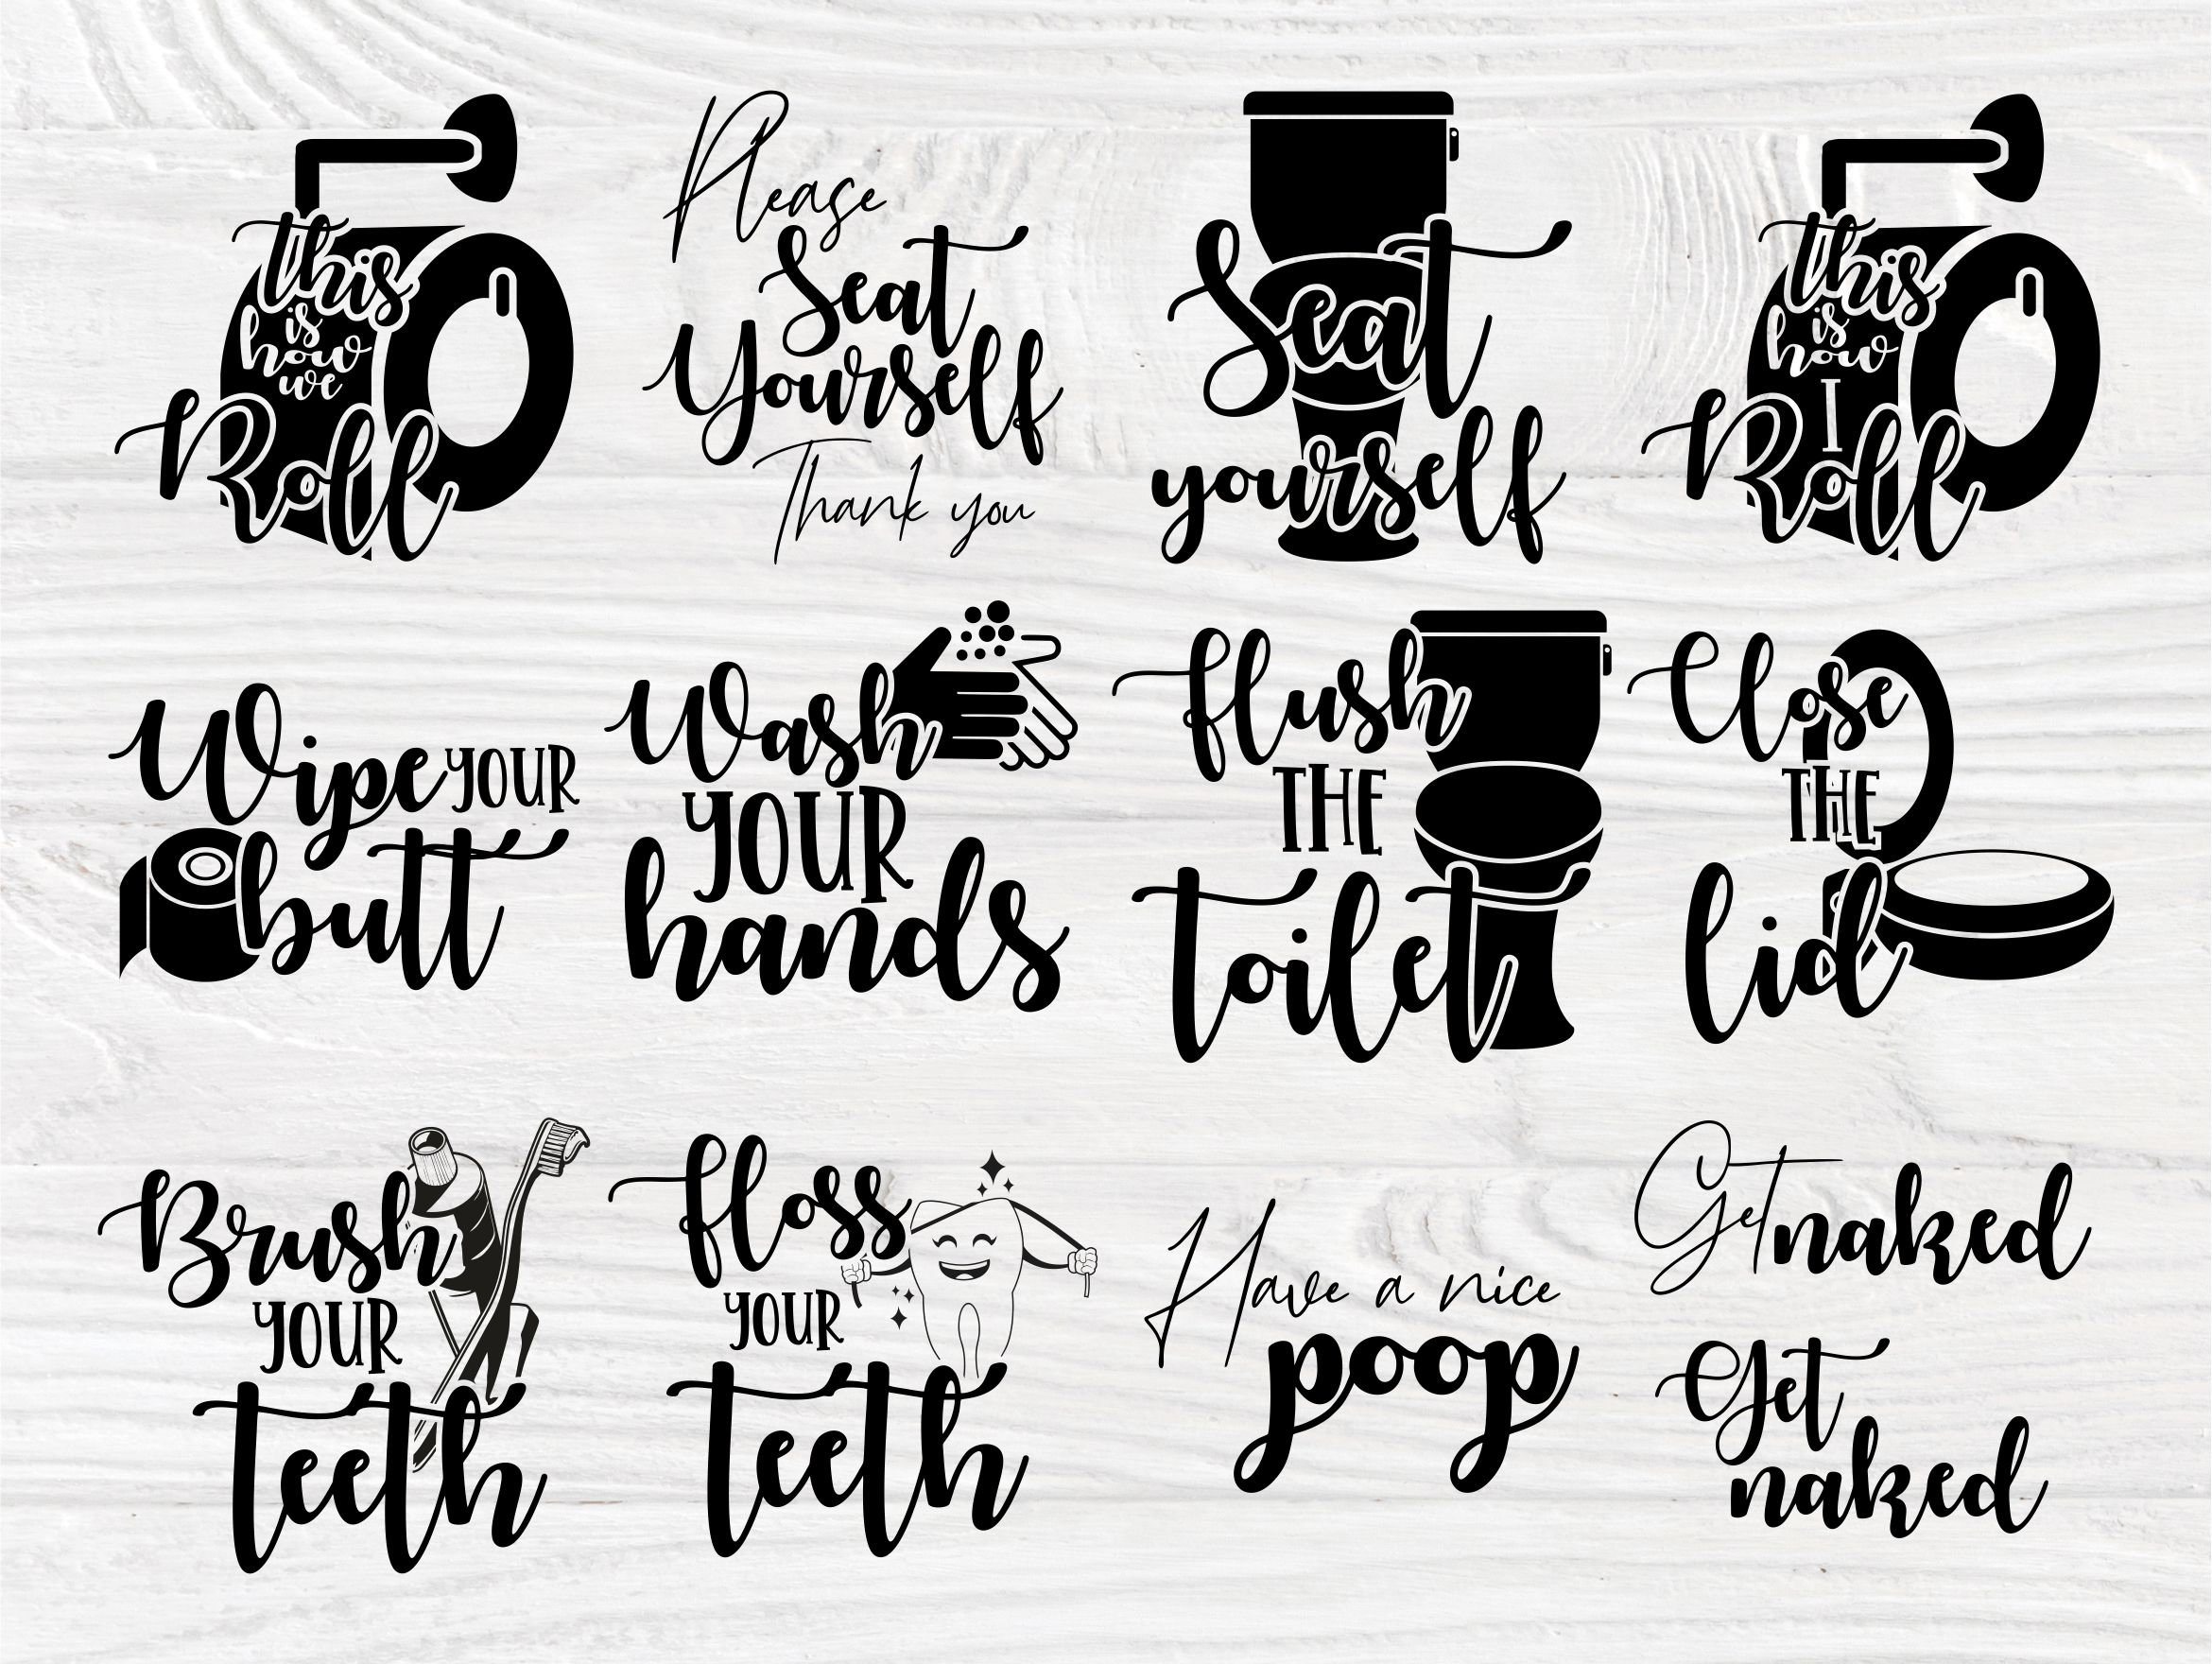 this
is
how
we
Roll
Please
Seat
Yourself
Thank you
Seat
yourself
this
is
how
I
Roll
Wipe YOUR
butt
Wash
YOUR
hands
flush
THE
toilet
Close
THE
lid
Brush
YOUR
teeth
floss
YOUR
teeth
Have a nice
poop
Get naked
Get
naked